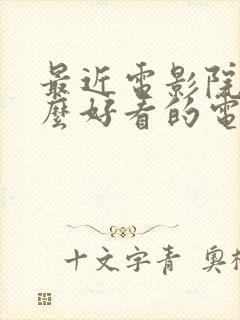 最近電影院
麼好看的電
十文字青 奧